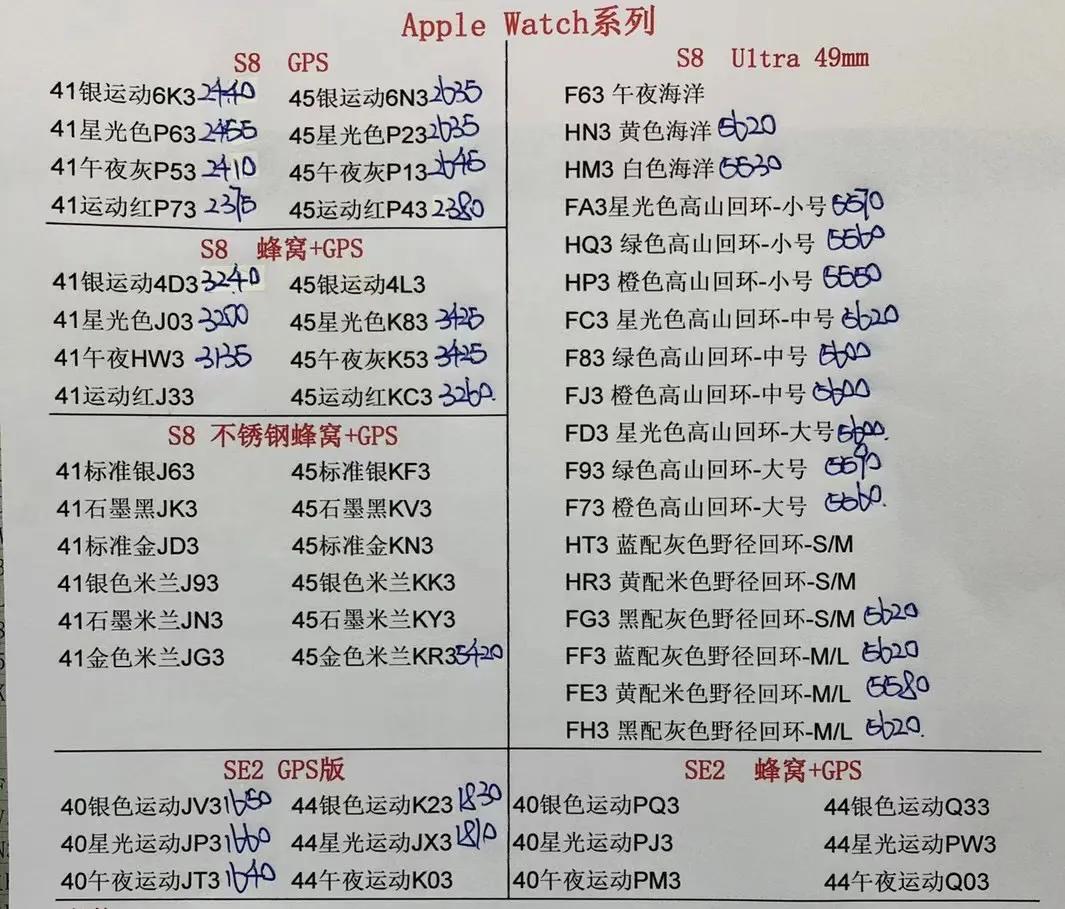 Apple Watch系列
S8 GPS
41银运动6K3 2440 45银运动6N3 2635
41星光色P63 2455 45星光色P23 2635
41午夜灰P53 2410 45午夜灰P13 2645
41运动红P73 2375 45运动红P43 2380
S8 蜂窝+GPS
41银运动4D3 3240 45银运动4L3
41星光色J03 3200 45星光色K83 3425
41午夜HW3 3135 45午夜灰K53 3425
41运动红J33 45运动红KC3 3260.
S8 不锈钢蜂窝+GPS
41标准银J63 45标准银KF3
41石墨黑JK3 45石墨黑KV3
41标准金JD3 45标准金KN3
41银色米兰J93 45银色米兰KK3
41石墨米兰JN3 45石墨米兰KY3
41金色米兰JG3 45金色米兰KR3 5420
S8 Ultra 49mm
F63 午夜海洋
HN3 黄色海洋 5620
HM3 白色海洋 5530
FA3星光色高山回环-小号 5570
HQ3 绿色高山回环-小号 5560
HP3 橙色高山回环-小号 5550
FC3 星光色高山回环-中号 5620
F83 绿色高山回环-中号 5600
FJ3 橙色高山回环-中号 5600
FD3 星光色高山回环-大号 5600.
F93 绿色高山回环-大号 5590
F73 橙色高山回环-大号 5560.
HT3 蓝配灰色野径回环-S/M
HR3 黄配米色野径回环-S/M
FG3 黑配灰色野径回环-S/M 5620
FF3 蓝配灰色野径回环-M/L 5620
FE3 黄配米色野径回环-M/L 5580
FH3 黑配灰色野径回环-M/L 5620.
SE2 GPS版
40银色运动JV3 1650 44银色运动K23 1830
40星光运动JP3 1660 44星光运动JX3 1810
40午夜运动JT3 1640 44午夜运动K03
SE2 蜂窝+GPS
40银色运动PQ3 44银色运动Q33
40星光运动PJ3 44星光运动PW3
40午夜运动PM3 44午夜运动Q03